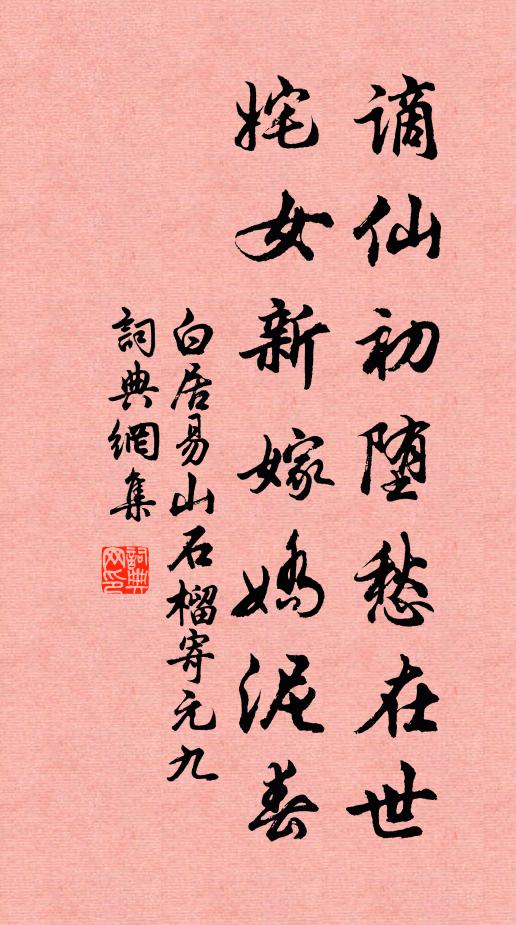 謫仙初堕愁在世
姹女新嫁嬌泥春
白居易山石榴寄元九
詞典網集
詞典网印